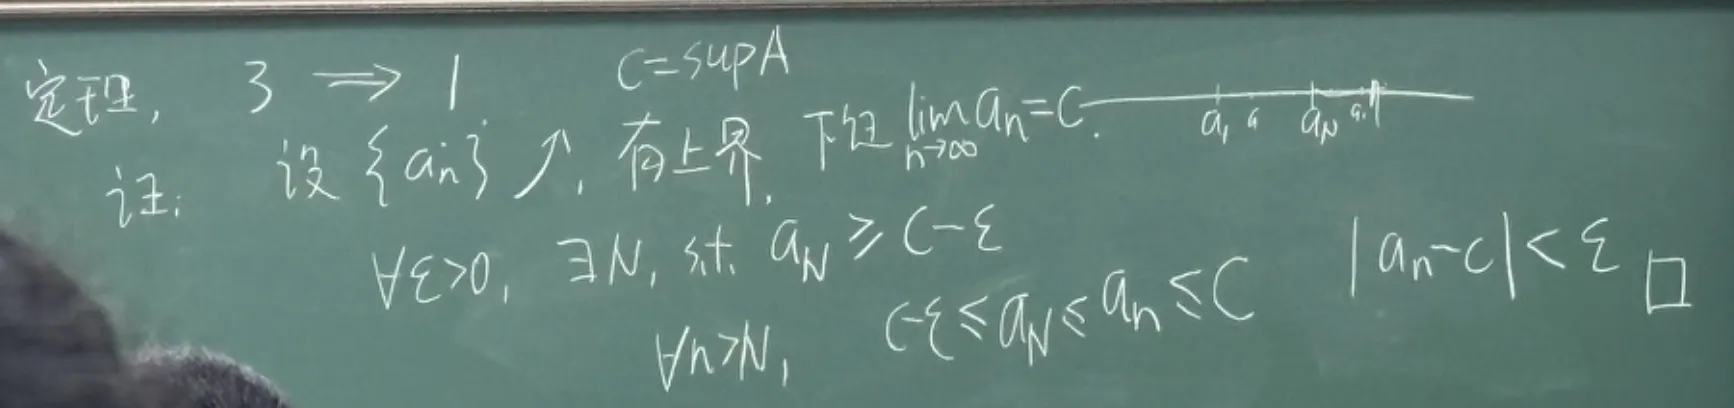 定理, 3 ⟹ 1
c=supA
证: 设 {an} ↗, 有上界, 下证 lim n→∞ an=C.
a1 aN
∀ε>0, ∃N, s.t. aN ≥ C-ε
∀n>N, C-ε ≤ aN ≤ an ≤ C |an-c|<ε □